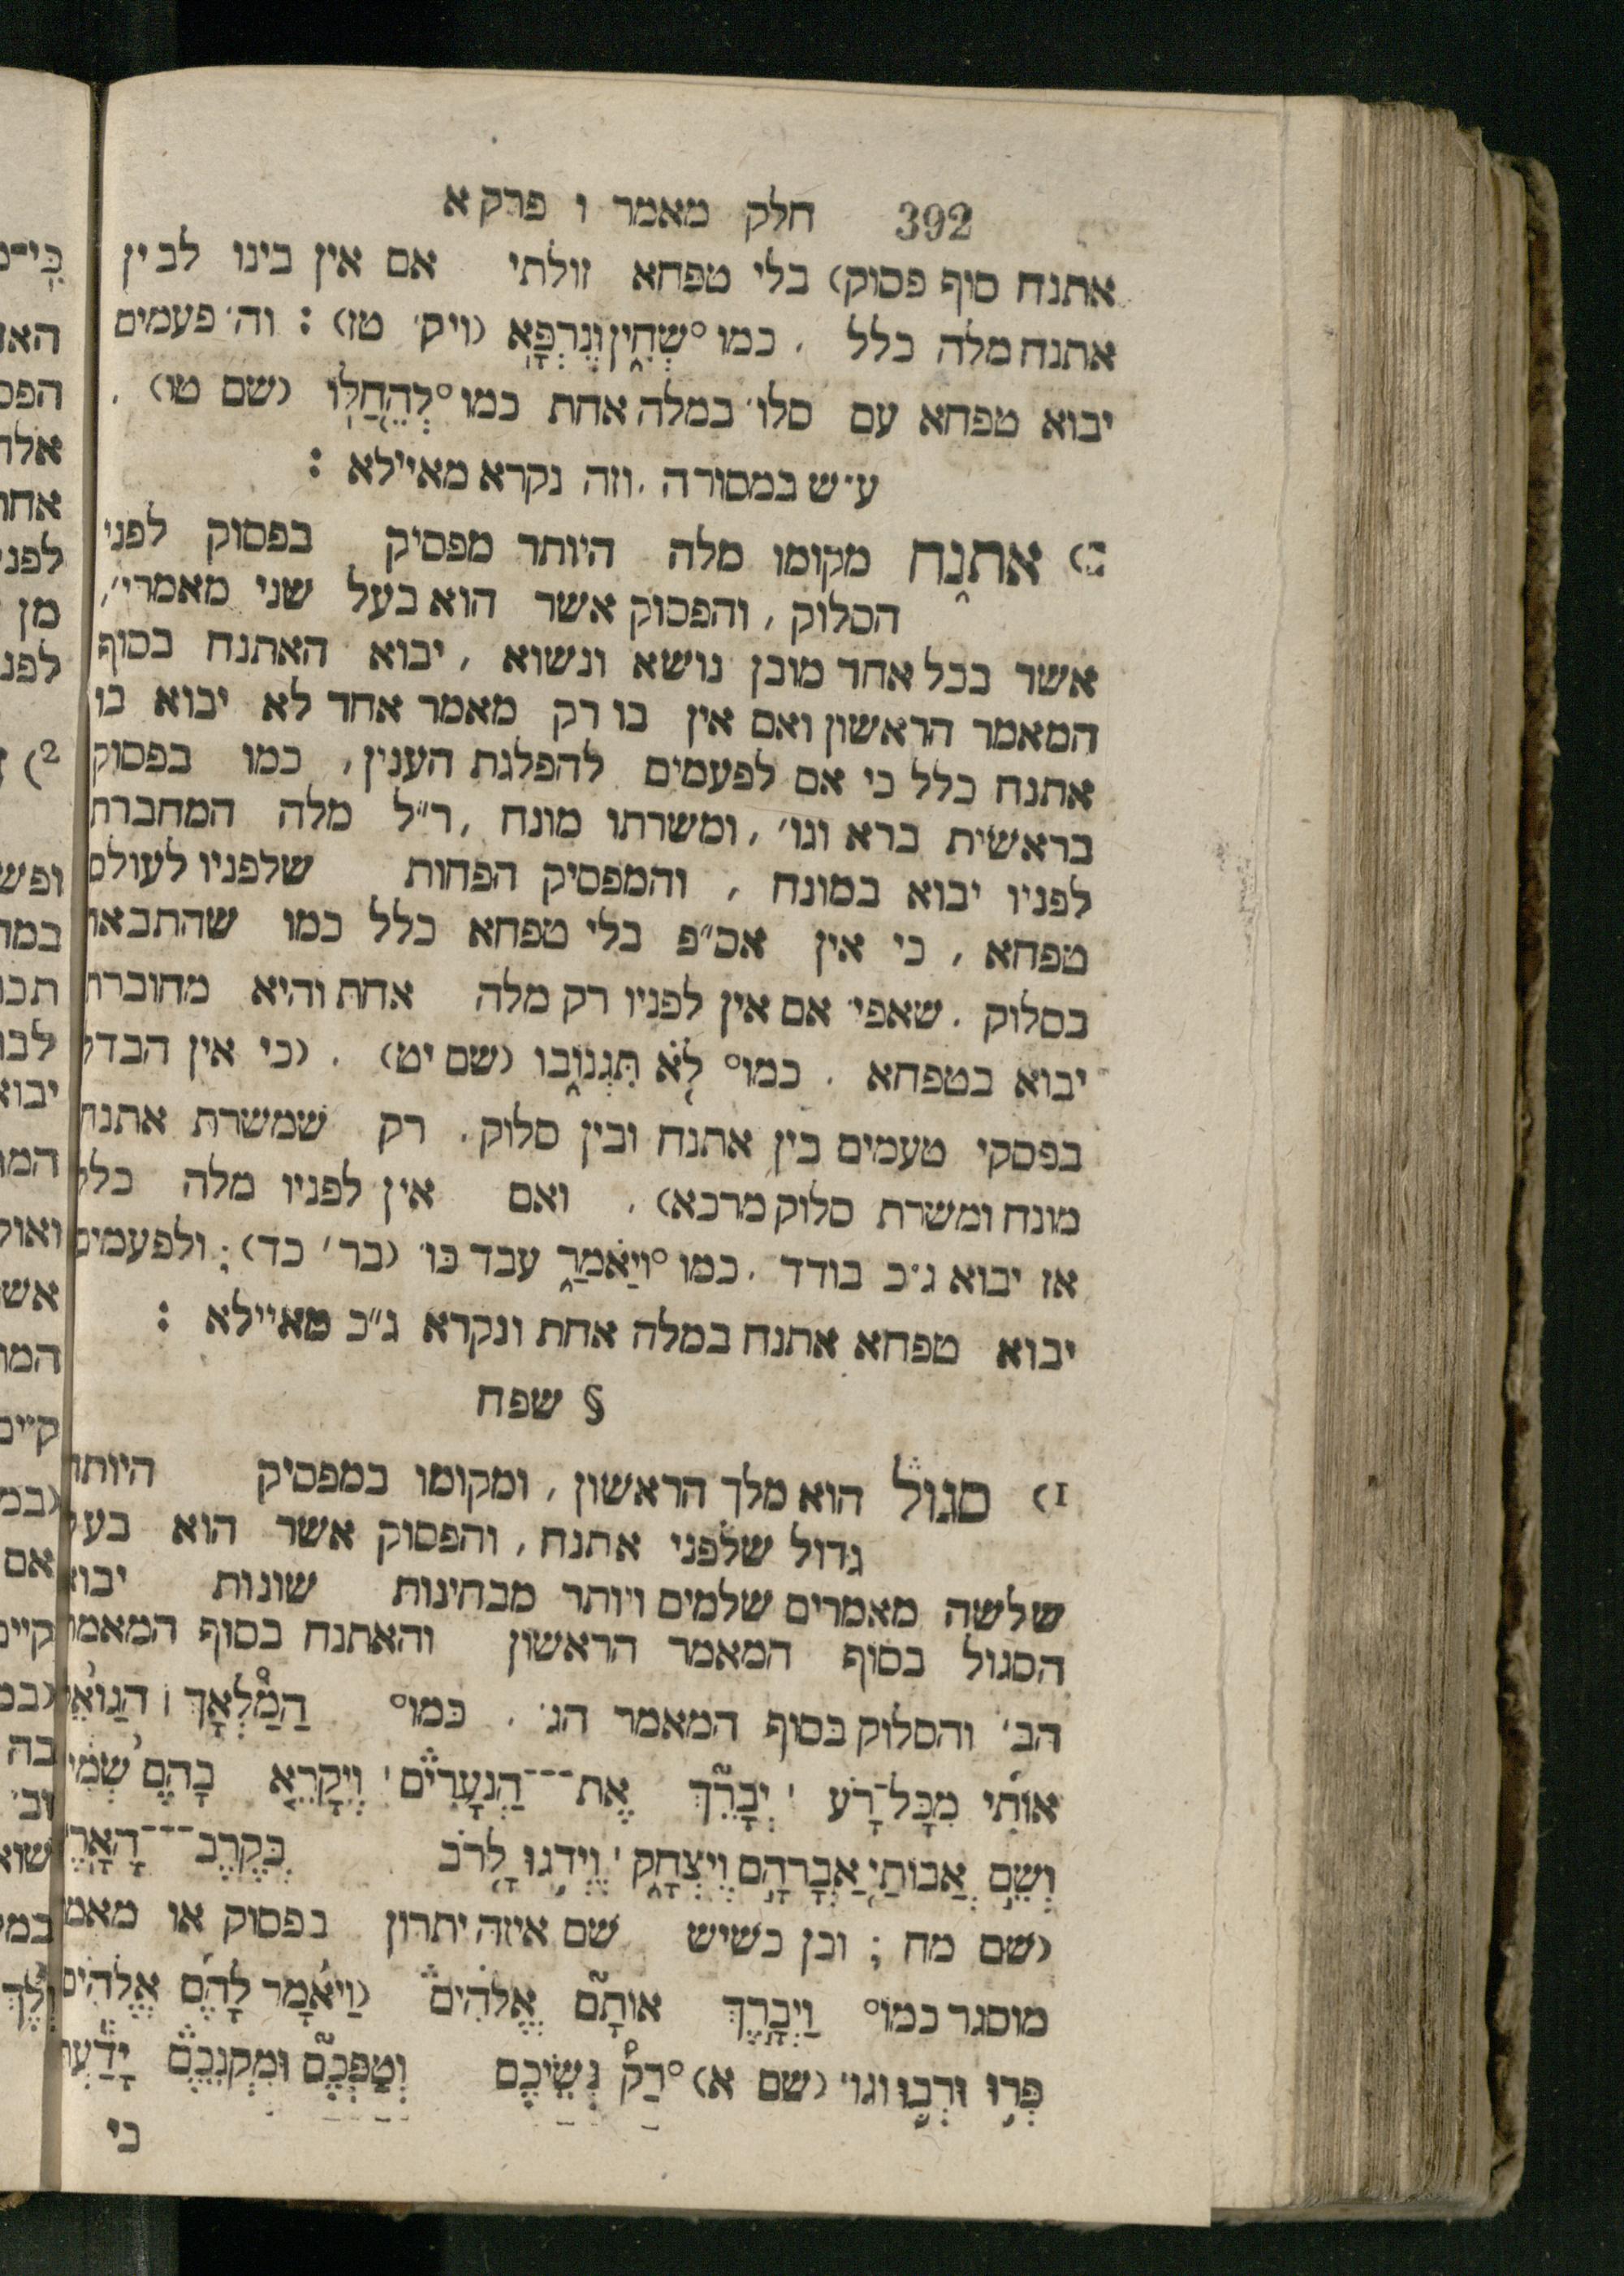 392 חלק מאמר ו פרק א
אתנח סוף פסוק) בלי טפחא זולתי אם אין בינו לבין
אתנח מלה כלל . כמו° שְׁחִ֑ין וְנִרְפָּֽא (ויק׳ טז) : וה׳ פעמים
יבוא טפחא עם סלו׳ במלה אחת כמו° לְהֵ֖חַלּֽוֹ (שם טו) .
ע״ש במסורה . וזה נקרא מאיילא :
אתנ֑ח מקומו מלה היותר מפסיק בפסוק לפני
הסלוק , והפסוק אשר הוא בעל שני מאמרי׳,
אשר בכל אחד מובן נושא ונשוא , יבוא האתנח בסוף
המאמר הראשון ואם אין בו רק מאמר אחד לא יבוא בו
אתנח כלל כי אם לפעמים להפלגת הענין, כמו בפסוק
בראשית ברא וגו׳ , ומשרתו מונח , ר״ל מלה המחברת
לפניו יבוא במונח , והמפסיק הפחות שלפניו לעולם
טפחא , כי אין אס״פ בלי טפחא כלל כמו שהתבאר
בסלוק . שאפי׳ אם אין לפניו רק מלה אחת והיא מחוברת
יבוא בטפחא . כמו° לֹ֖א תִּגְנֹ֑ובו (שם יט) . (כי אין הבדל
בפסקי טעמים בין אתנח ובין סלוק. רק שמשרת אתנח
מונח ומשרת סלוק מרכא) . ואם אין לפניו מלה כלל
אז יבוא ג״כ בודד . כמו° ויֹּאמַ֑ר עבד בו׳ (בר׳ כד) : ולפעמים
יבוא טפחא אתנח במלה אחת ונקרא ג״כ מאיילא :
§ שפח
1) סגול֒ הוא מלך הראשון , ומקומו במפסיק היותר
גדול שלפני אתנח , והפסוק אשר הוא בעל
שלשה מאמרים שלמים ויותר מבחינות שונות יבוא
הסגול בסוף המאמר הראשון והאתנח בסוף המאמר
הב׳ והסלוק בסוף המאמר הג׳ . כמו° הַמַּלְאָךְ֩ ׀ הַגּוֹאֵ֨ל
אוֹתִ֜י מִכָּל־רָ֗ע ׳ יְבָרֵךְ֮ אֶת־הַנְּעָרִים֒ ׳ וְיִקָּרֵ֤א בָהֶם֙ שְׁמִ֔י
וְשֵׁ֥ם אֲבוֹתַ֖י אַבְרָהָ֣ם וְיִצְחָ֑ק ׳ וְיִדְגּ֥וּ לָרֹ֖ב בְּקֶ֥רֶב־הָאָֽרֶץ
(שם מח ; וכן כשיש שם איזה יתרון בפסוק או מאמר
מוסגר כמו° וַיְבָ֣רֶךְ אוֹתָם֮ אֱלֹהִים֒ (וַיֹּ֨אמֶר לָהֶ֜ם אֱלֹהִ֗ים
פְּר֥וּ וּרְב֛וּ וגו׳ (שם א) °רַ֠ק נְשֵׁיכֶ֣ם וְטַפְּכֶם֮ וּמִקְנֵכֶם֒ יָדַ֕עְתִּי
כי